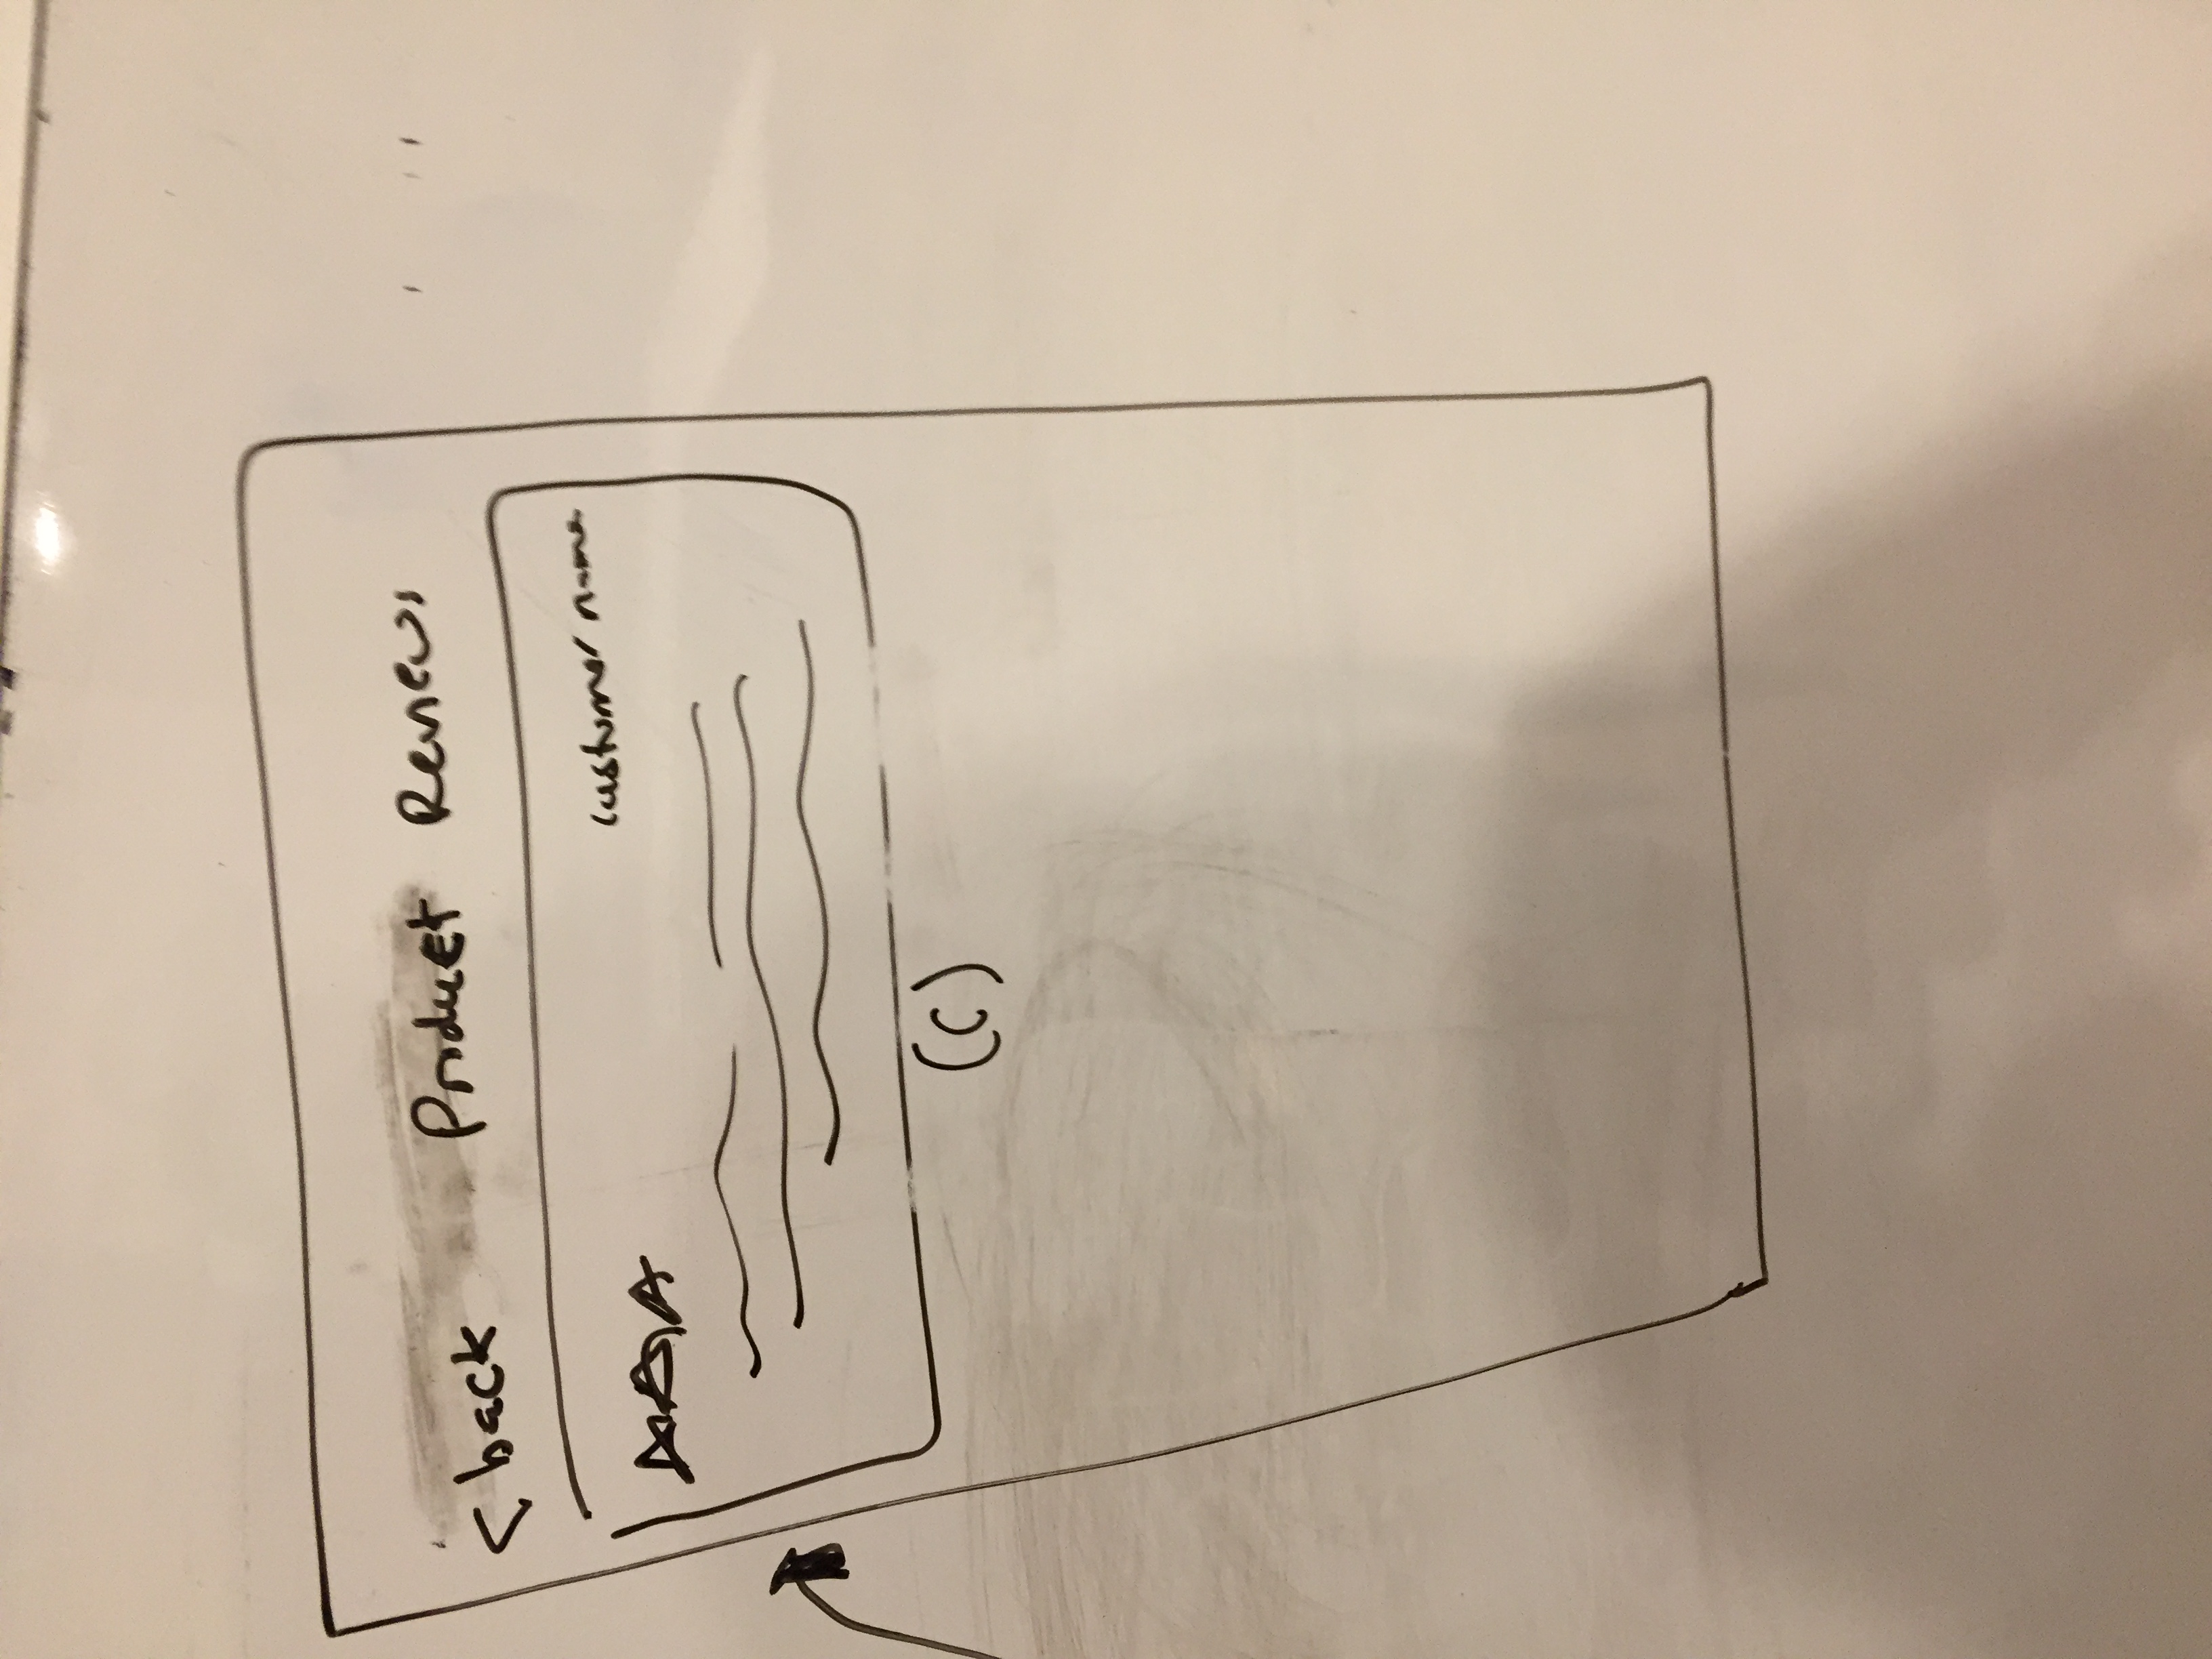 < back Product Reviews
customer name
(C)